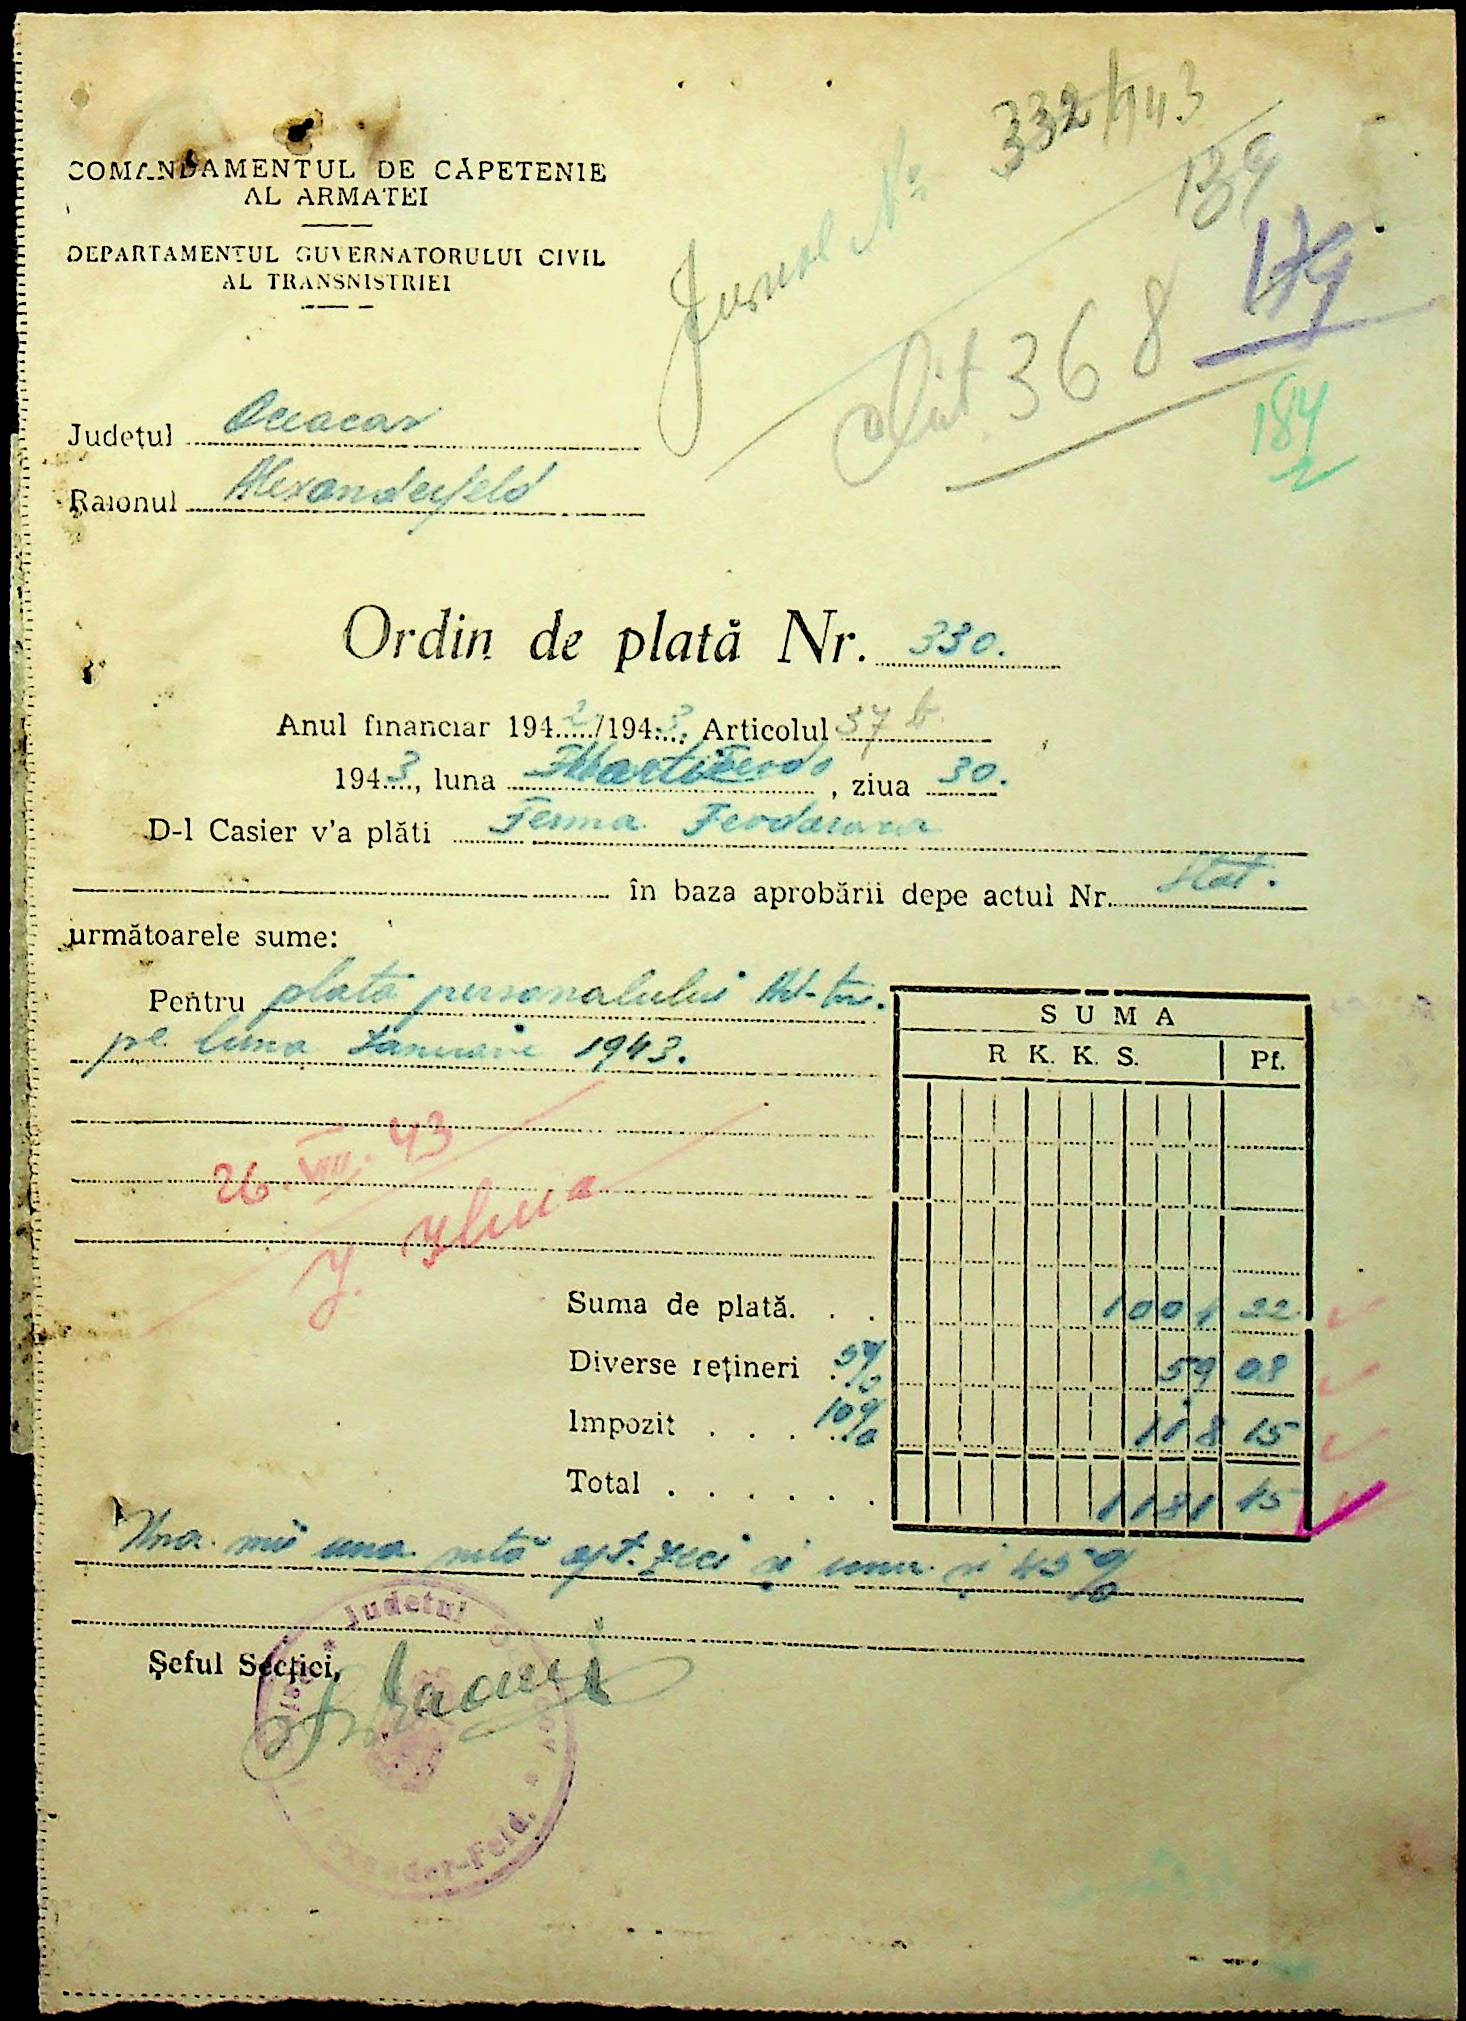 COMANDAMENTUL DE CĂPETENIE
AL ARMATEI
DEPARTAMENTUL GUVERNATORULUI CIVIL
AL TRANSNISTRIEI
Jurnal No 332/943
139
179
368
184
Județul Oceacov
Raionul Alexanderfeld
Ordin de plată Nr. 330.
Anul financiar 1942/1943 Articolul 37 b.
1943, luna Martie, ziua 30.
D-l Casier v'a plăti Ferma
în baza aprobării depe actul Nr. Stat.
următoarele sume:
Pentru plata personalului Ad-tiv.
pe luna Ianuarie 1943.
SUMA
R K. K. S. Pf.
26.VIII.43
Suma de plată. . . 1001 22
Diverse rețineri 5% 59 08
Impozit . . . 10% 118 15
Total . . . . . . . 1181 45
Una mie una sută opt zeci și unu și 45%
Șeful Secției,
Județul
-Feld.